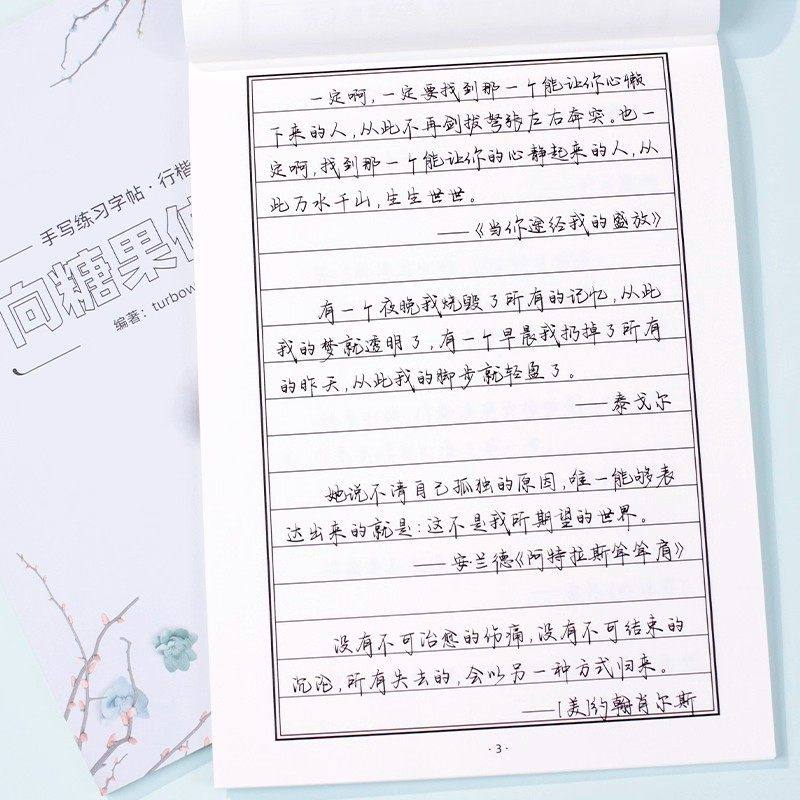 一定啊,一定要找到那一个能让你心懒
下来的人,从此不再剑拔弩张左右奔突。也一
定啊,找到那一个能让你的心静起来的人,从
此万水千山,生生世世。
——《当你途经我的盛放》
有一个夜晚我烧毁了所有的记忆,从此
我的梦就透明了,有一个早晨我扔掉了所有
的昨天,从此我的脚步就轻盈了。
——泰戈尔
她说不清自己孤独的原因,唯一能够表
达出来的就是:这不是我所期望的世界。
——安·兰德《阿特拉斯耸耸肩》
没有不可治愈的伤痛,没有不可结束的
沉沦,所有失去的,会以另一种方式归来。
——[美]约翰肖尔斯
·3·
手写练习字帖·行楷
向糖果
编著:turbow